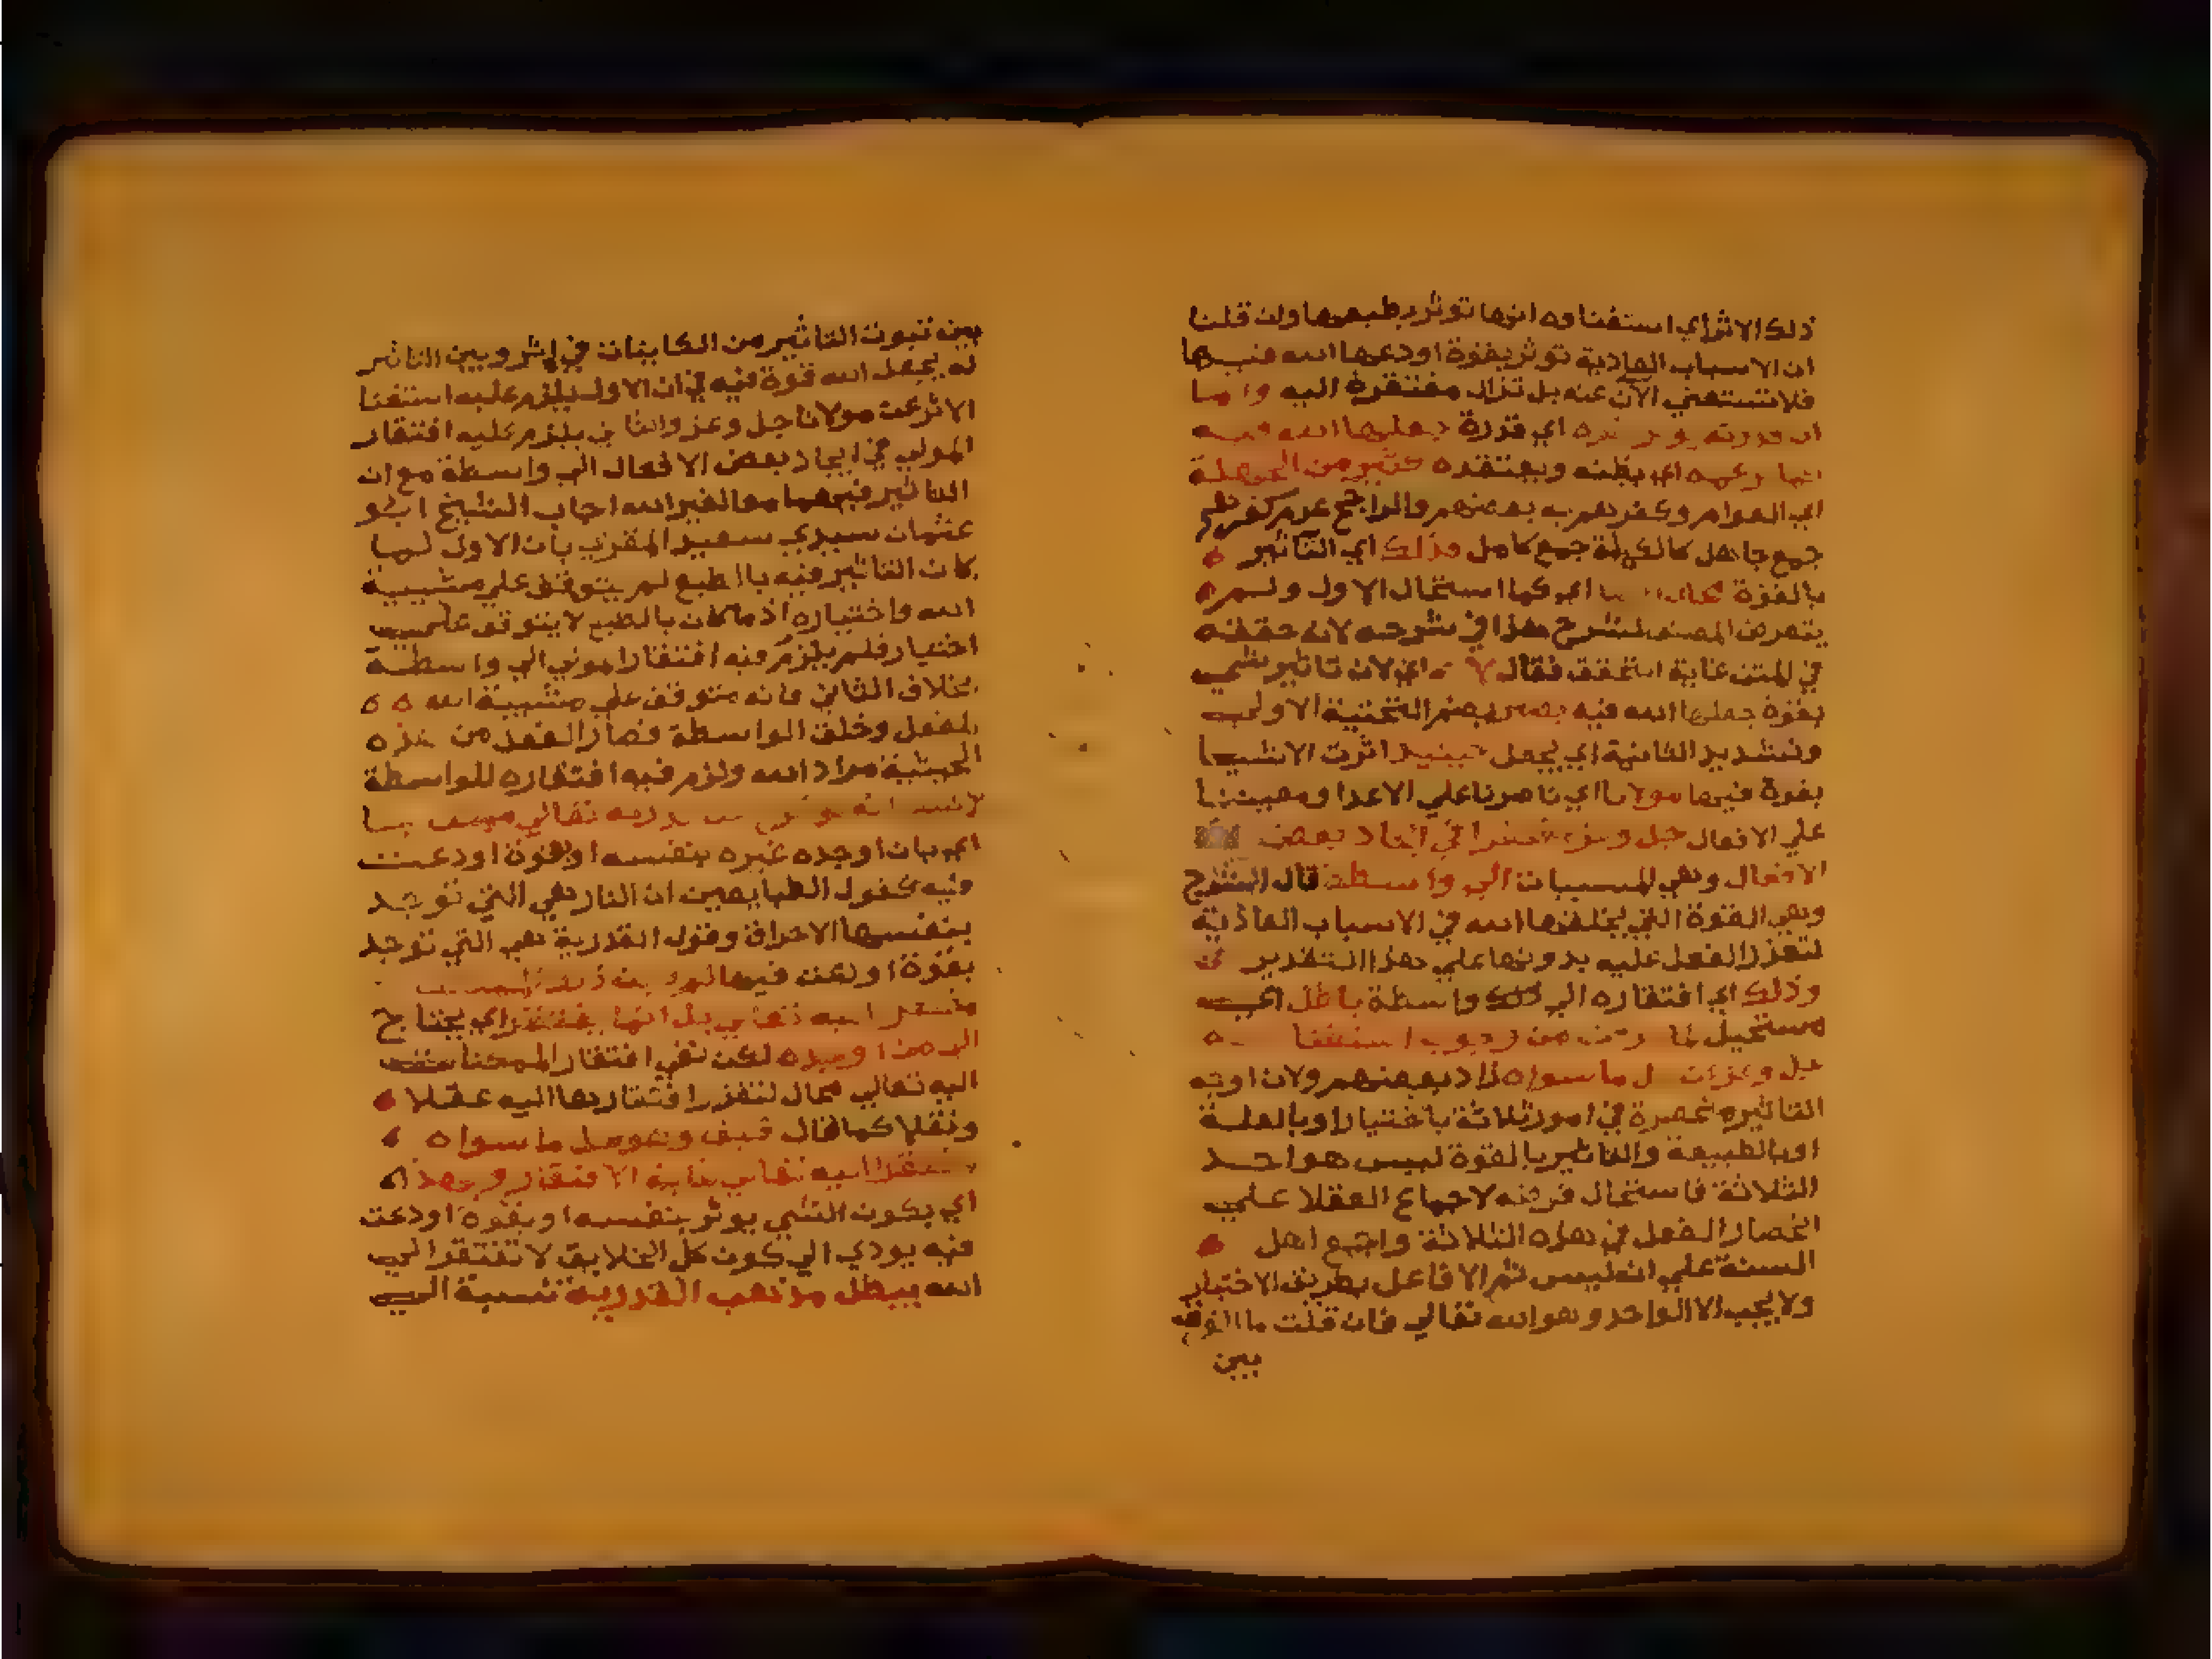 ذلك الاثر اي استغناوه انها توثر بطبعها وان قلنا
ان الاسباب العادية توثر بقوة اودعها الله فيها
فلا تستغني الآن عنه بل تزال مفتقرة اليه واما
ان قدرته اي قدرة جعلها الله فيه
كما زعمه اي يظنه ويعتقده كثير من الجهلة
اي العوام وكفرهم به بعضهم والراجح عدم كفرهم
جمع جاهل كالكملة جمع كامل فذلك اي التأثير
بالقوة محال اي كما استحال الاول ولم
يتعرض المصنف لشرح هذا في شرحه لانه حققه
في المتن غاية التحقق فقال لا اي لان تاثير شي
بقوة جعلها الله فيه يصير بضم التحتية الاولى
وتشديد الثانية اي يجعل حينيذ اثرت الاشيا
بقوة فيها مولانا اي ناصرنا علي الاعدا ومعيننا
علي الافعال جل وعز مفتقرا في ايجاد بعض
الافعال وهي المسببات الي واسطة قال الشارح
وهي القوة التي يخلقها الله في الاسباب العادية
لتعذر الفعل عليه بدونها علي هذا التقدير
وذلك اي افتقاره الي تلك واسطة باطل اي
مستحيل لما عرفت من وجوب استغنا
جل وعز عن كل ما سواه زاد بعضهم ولان اوجه
التاثير منحصرة في امور ثلاثة باختيار او بالعلة
او بالطبيعة والتاثير بالقوة ليس هو احد
الثلاثة فاستحال فرضه لاجماع العقلا علي
انحصار الفعل في هذه الثلاثة واجمع اهل
السنة علي انه ليس ثم الا فاعل بطريق الاختيار
ولا يجب الا الواحد وهو الله تعالي فان قلت ما الفرق
بين
بين ثبوت التاثير من الكاينات في اثر وبين التاثر
له بجعل الله قوة فيه في ان الاول يلزم عليه استغنا
الاثر عن مولانا جل وعز والثاني يلزم عليه افتقار
المولي في ايجاد بعض الافعال الي واسطة مع ان
التاثير فيهما معا لغير الله اجاب الشيخ ابو
عثمان سيدي سعيد المقري بان الاول لما
كان التاثير فيه بالطبع لم يتوقف علي مشيية
الله واختياره اذ ما كان بالطبع لا يتوقف علي
اختيار فلم يلزم فيه افتقار المولي الي واسطة
بخلاف الثاني فانه متوقف علي مشيية الله
لفعل وخلق الواسطة فصار الفعل من هذه
الحيثية مراد الله ولزم فيه افتقاره للواسطة
تعالي
اي بان اوجده غيره بنفسه او بقوة اودعت
فيه كقول الطبايعين ان النار هي التي توجد
بنفسها الاحراق وقول القدرية هي التي توجد
بقوة اودعت فيها
اليه تعالي بل انها يفتقر اي يحتاج
وغيره لكن نفي افتقار الممكنات
اليه تعالي محال لتقرر افتقارها اليه عقلا
ونقلا كما قال كيف وهو كل ما سواه
مفتقر اليه تعالي غاية الافتقار وهذا
اي بكون الشي يوثر بنفسه او بقوة اودعت
فيه يودي الي كون كل الخلايق لا تفتقر الي
الله يبطل مذهب القدرية نسبة الي